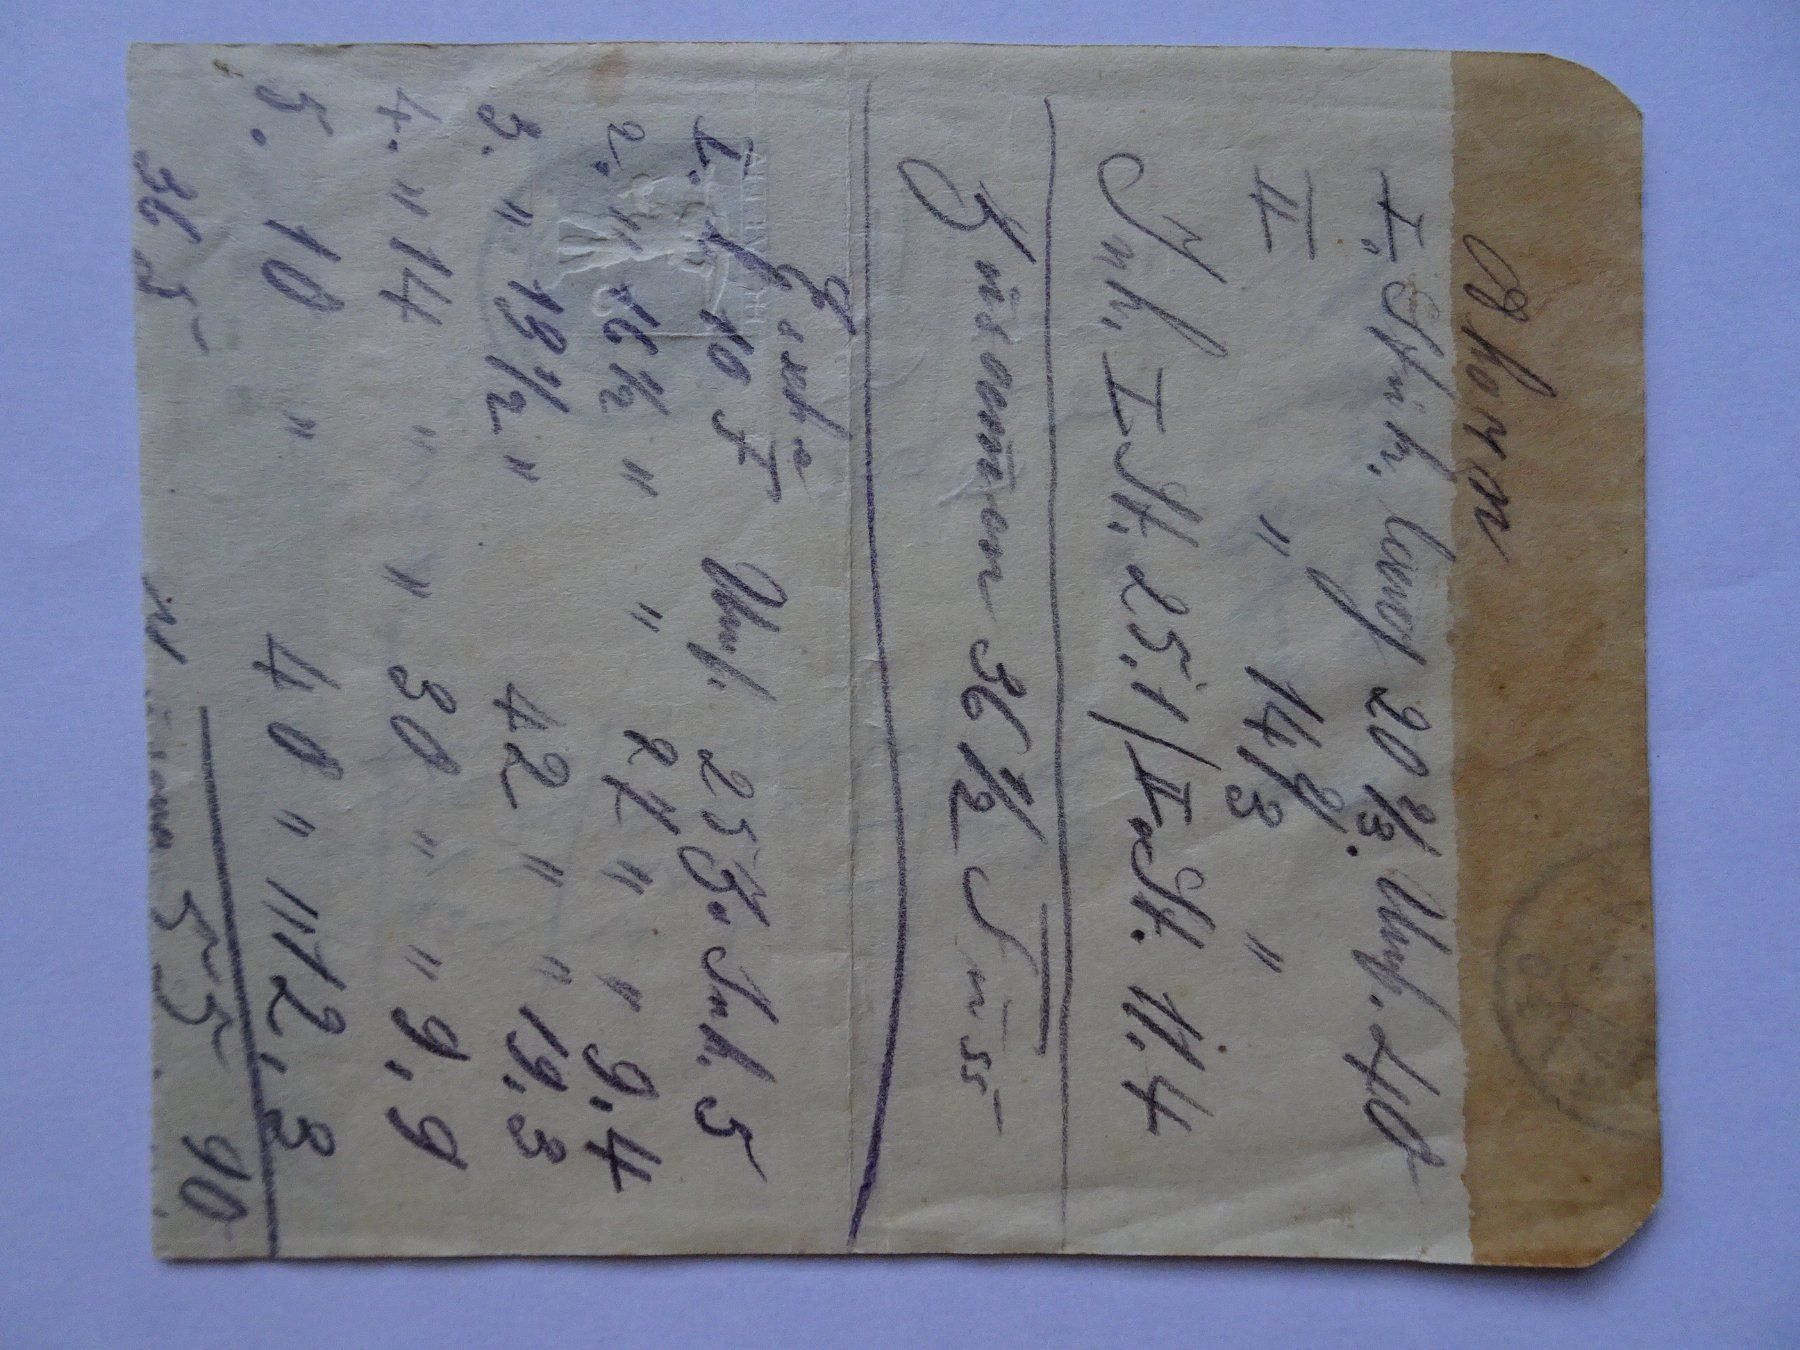 Ahorn
I. Stück. lang 20 2/3. Umf. 40
II " 14 2/3 "
Inh. I St. 25.1/II St. 11.4
Zusammen 36 1/2 Fuss
Esche
I. L. 10 F Umf. 25 Z. Inh. 5
2. " 16 1/2 " " 27 " " 9.4
3. " 19 1/2 " 42 " " 19,3
4. " 14 " " 30 " " 9,9
5. 10 " 40 " " 12,3
55. 90
36 5